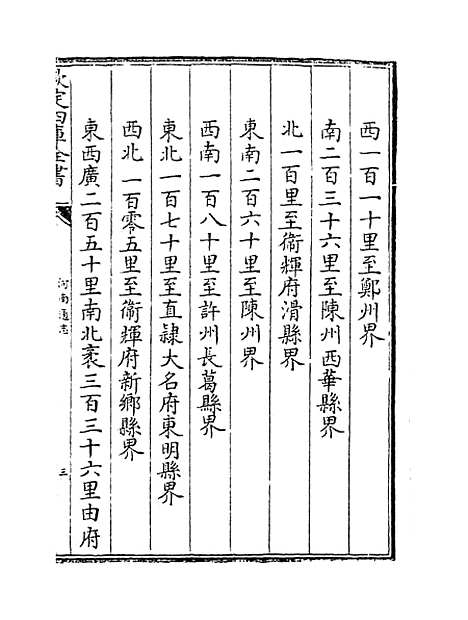 西一百一十里至鄭州界
南二百三十六里至陳州西華縣界
北一百里至衞輝府滑縣界
東南二百六十里至陳州界
西南一百八十里至許州長葛縣界
東北一百七十里至直隷大名府東明縣界
西北一百零五里至衞輝府新鄉縣界
東西廣二百五十里南北袤三百三十六里由府
欽定四庫全書
河南通志
三